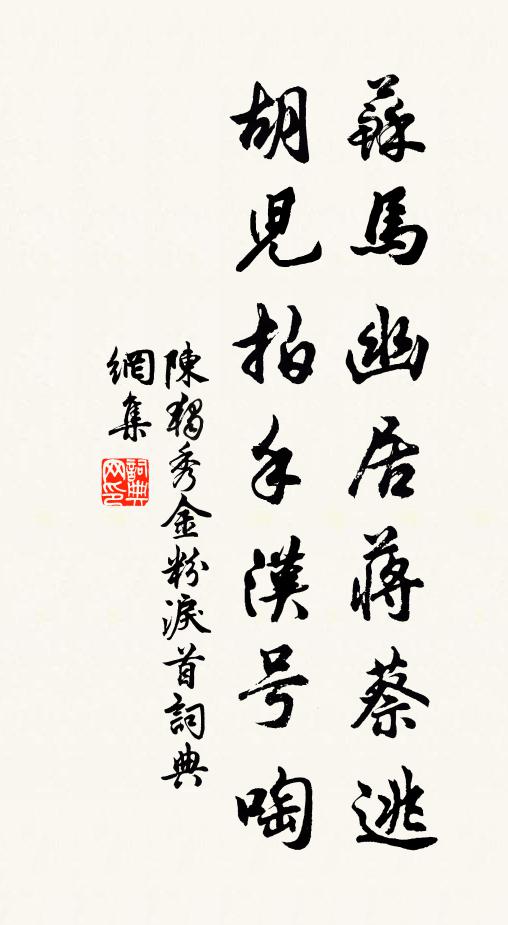 蘇馬幽居蔣蔡逃
胡児拍手漢号啕
陳獨秀金粉淚首詞典
網集
詞典
网印